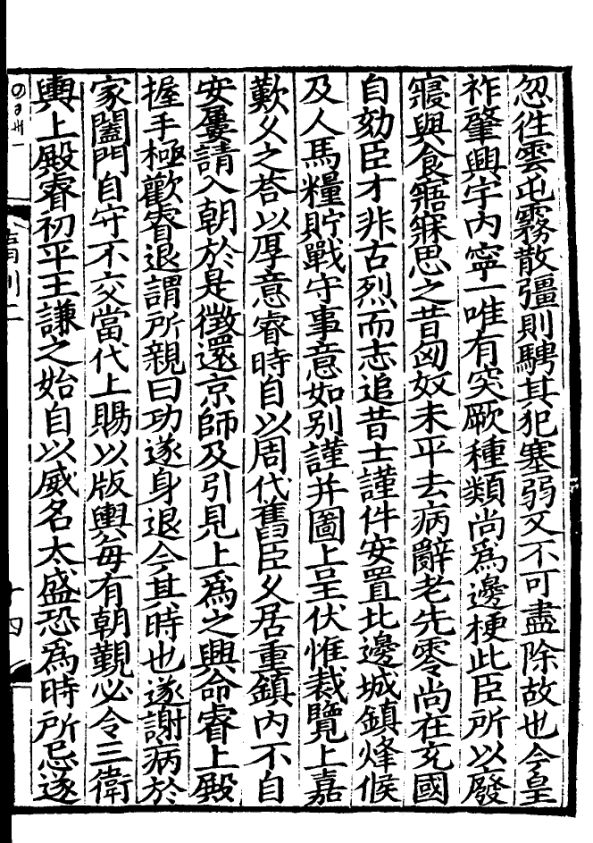 忽徃雲屯霧散彊則騁其犯塞弱又不可盡除故也今皇
祚肇興宇内寧一唯有突厥種類尚爲邊梗此臣所以廢
寢與食寤寐思之昔匈奴未平去病辭老先零尚在充國
自劾臣才非古烈而志追昔士謹件安置北邊城鎮烽候
及人馬糧貯戰守事意如别謹并圖上呈伏惟裁覽上嘉
歎乆之荅以厚意睿時自以周代舊臣乆居重鎮内不自
安屢請入朝於是徵還京師及引見上爲之興命睿上殿
握手極歡睿退謂所親曰功遂身退今其時也遂謝病於
家闔門自守不交當代上賜以版輿每有朝覲必令三衛
輿上殿睿初平王謙之始自以威名太盛恐爲時所忌遂